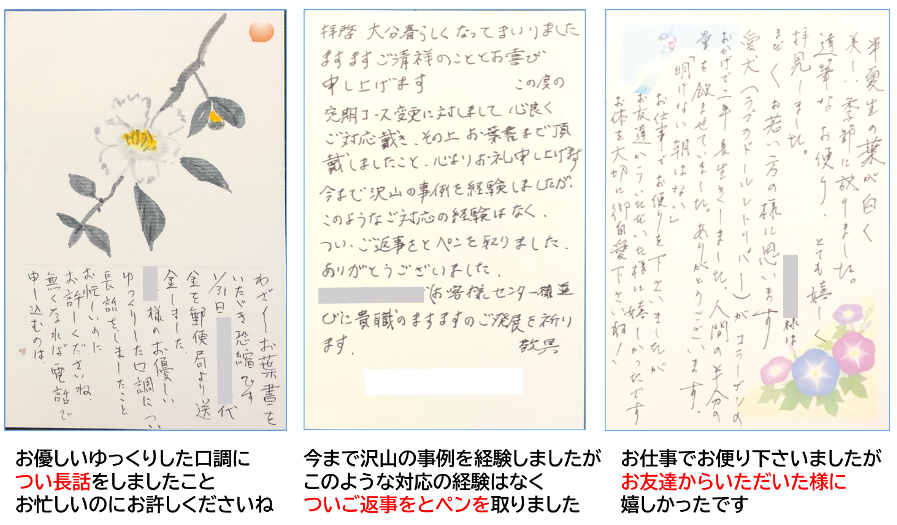 わざわざお葉書を
いただき恐縮です
1/31日 代
金を郵便局より送
金しました
様のお優しい
ゆっくりした口調につい
長話をしましたこと
お忙しいのに
お許しくださいね
無くなれば電話で
申し込むのは、
拝啓 大分春らしくなってまいりました
ますますご清祥のこととお喜び
申し上げます この度の
定期コース変更に対しまして心良く
ご対応戴き、その上お葉書まで頂
戴しましたこと、心よりお礼申し上げます
今まで沢山の事例を経験しましたが、
このようなご対応の経験はなく、
つい、ご返事をとペンを取りました、
ありがとうございました。
(お客様センター様並
びに貴職のますますのご発展を祈り
ます。 敬具
半夏生の葉が白く
美しい季節に成りました。
達筆なお便り、とても嬉しく
拝見しました。
まだ若い方の様に思います
愛犬(ラブラドールレトリバー)がコラーゲンの
おかげで二年長生きしました、人間の半分の
量を飲ませていました。ありがとうございます。
「明けない朝はない」
お仕事でお便りを下さいましたが
お友達からいただいた様に嬉しかったです
お体を大切に御自愛下さいね!
お優しいゆっくりした口調に
つい長話をしましたこと
お忙しいのにお許しくださいね
今まで沢山の事例を経験しましたが
このような対応の経験はなく
ついご返事をとペンを取りました
お仕事でお便り下さいましたが
お友達からいただいた様に
嬉しかったです